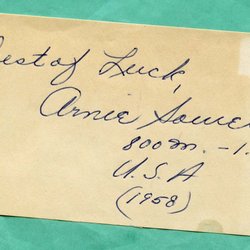 Best of Luck,
Arnie Sowe
800m. - 1.
U.S.A
(1958)